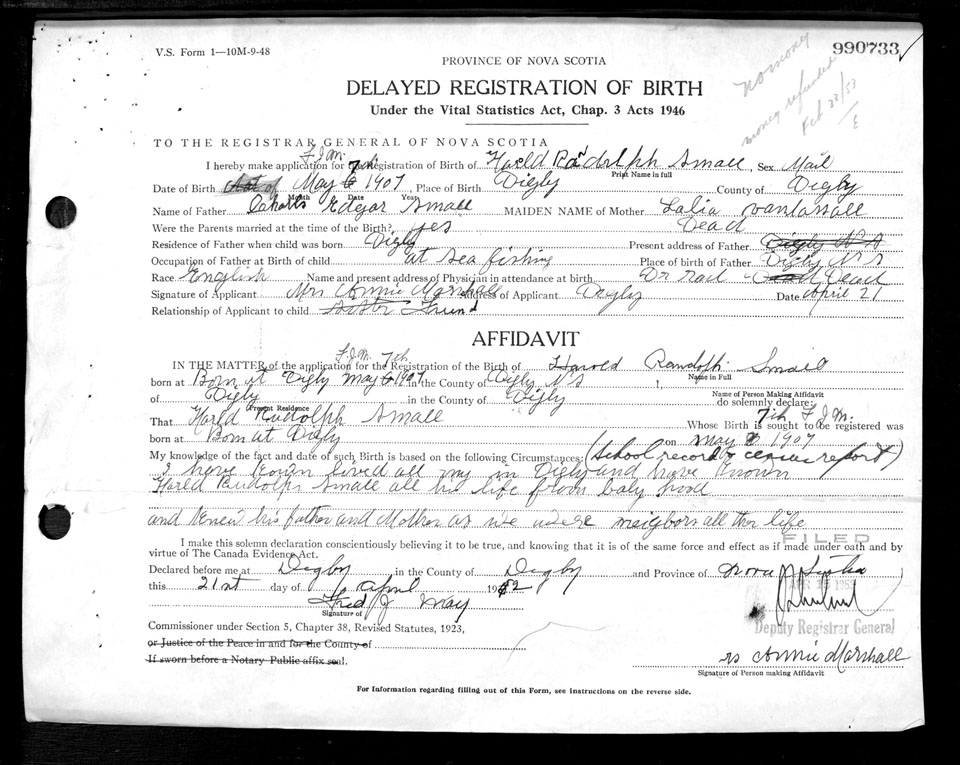 V.S. Form 1—10M-9-48
990733
PROVINCE OF NOVA SCOTIA
no money
money refunded
Feb 23/53
E
DELAYED REGISTRATION OF BIRTH
Under the Vital Statistics Act, Chap. 3 Acts 1946
TO THE REGISTRAR GENERAL OF NOVA SCOTIA
F.J.M.
I hereby make application for the Registration of Birth of Harld Small, Sex Mail
Print Name in full
7th
Date of Birth May 6 1907, Place of Birth Digby County of Digby
Month Year
Name of Father Edgar Small MAIDEN NAME of Mother Lalia vantassall
Were the Parents married at the time of the Birth? yes Dead
Residence of Father when child was born Digby Present address of Father Digby N S
Occupation of Father at Birth of child at Sea fishing Place of birth of Father Digby N S
Race English Name and present address of Physician in attendance at birth Dr Dead
Signature of Applicant Mrs Annie Marshall Address of Applicant Digby Date April 21
Relationship of Applicant to child
AFFIDAVIT
F.J.M. 7th
IN THE MATTER of the application for the Registration of the Birth of Harold Randolph Small
Name in Full
born at Born at Digby may 6 1907 in the County of Digby N S I,
of Digby in the County of Digby
Name of Person Making Affidavit
do solemnly declare:
Present Residence
7th F.J.M.
That Harld Rudolph Small Whose Birth is sought to be registered was
born at Born at Digby on may 6 1907
My knowledge of the fact and date of such Birth is based on the following Circumstances: (School record & census report)
I have lived all my in Digby and have known
Harld Rudolph Small all his life from baby hood
and knew his father and Mother as we were neigbors all thr life
FILED
I make this solemn declaration conscientiously believing it to be true, and knowing that it is of the same force and effect as if made under oath and by
virtue of The Canada Evidence Act.
Declared before me at Digby in the County of Digby and Province of Nova Scotia
this 21st day of April 1952
Fred J May
Signature of
Commissioner under Section 5, Chapter 38, Revised Statutes, 1923,
Deputy Registrar General
or Justice of the Peace in and for the County of
If sworn before a Notary Public affix seal.
rs Annie Marshall
Signature of Person making Affidavit
For Information regarding filling out of this Form, see instructions on the reverse side.